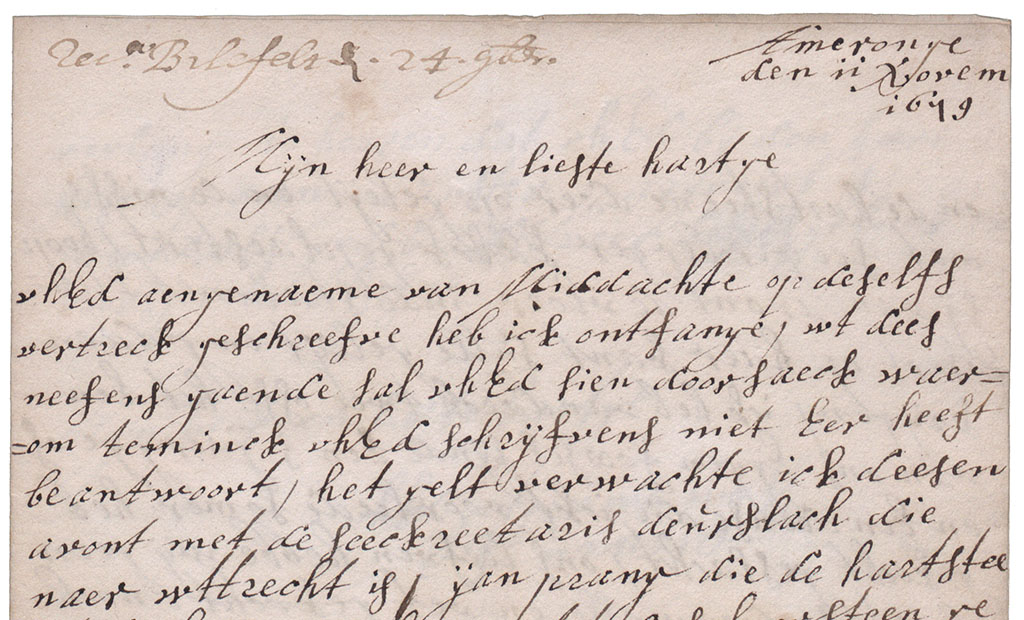 Rec. Bilefelt 24. 9br.
Ameronge
den 11 Novem
1679
Mijn heer en lieste hartge
uhEd aengenaeme van Middachte op deselfs
vertreck geschreefve heb ick ontfange, wt dees
neefens gaende sal uhEd sien doorsaeck waer=
=om teminck uhEd schrijfvens niet Eer heeft
beantwoort, het gelt verwachte ick deesen
avont met de seeckreetaris deurslach die
naer wttrecht is, ijan prang die de hartstee